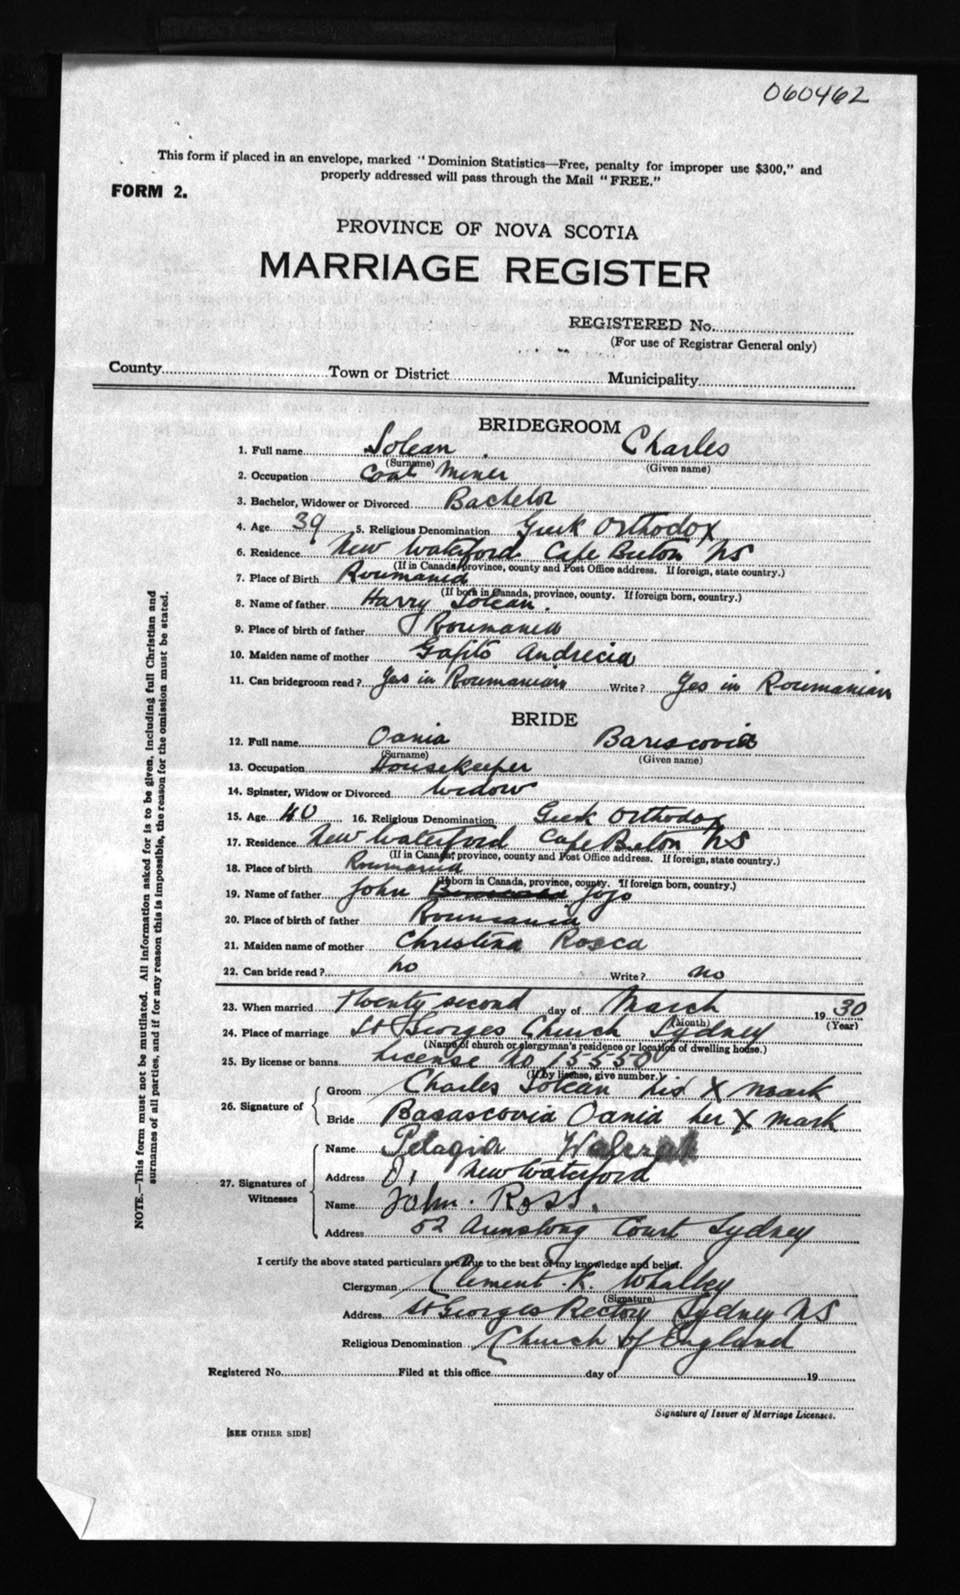 060462
This form if placed in an envelope, marked "Dominion Statistics—Free, penalty for improper use $300," and
properly addressed will pass through the Mail "FREE."
FORM 2.
PROVINCE OF NOVA SCOTIA
MARRIAGE REGISTER
REGISTERED No.
(For use of Registrar General only)
County Town or District Municipality
BRIDEGROOM
1. Full name Solcan Charles
(Surname) (Given name)
2. Occupation Coal Miner
3. Bachelor, Widower or Divorced Bachelor
4. Age 39 5. Religious Denomination Greek Orthodox
6. Residence New Waterford Cape Breton NS
(If in Canada, province, county and Post Office address. If foreign, state country.)
7. Place of Birth Roumania
(If born in Canada, province, county. If foreign born, country.)
8. Name of father Harry Solcan.
9. Place of birth of father Roumania
10. Maiden name of mother Gafito Andrecia
11. Can bridegroom read? Yes in Roumanian Write? Yes in Roumanian
BRIDE
12. Full name Oania Bariscovia
(Surname) (Given name)
13. Occupation Housekeeper
14. Spinster, Widow or Divorced Widow
15. Age 40 16. Religious Denomination Greek Orthodox
17. Residence New Waterford Cape Breton NS
(If in Canada, province, county and Post Office address. If foreign, state country.)
18. Place of birth Roumania
(If born in Canada, province, county. If foreign born, country.)
19. Name of father John Jojo
20. Place of birth of father Roumania
21. Maiden name of mother Christina Rosca
22. Can bride read? no Write? no
23. When married Twenty second day of March 19 30
(Month) (Year)
24. Place of marriage St Georges Church Sydney
(Name of church or clergyman's residence or location of dwelling house.)
25. By license or banns License No 15550
(If by license, give number.)
26. Signature of
Groom Charles Solcan his X mark
Bride Basascovia Oania her X mark
27. Signatures of Witnesses
Name Pelagia
Address New Waterford
Name John. Ross.
Address 52 Armstrong Court Sydney
I certify the above stated particulars are true to the best of my knowledge and belief.
Clergyman Clement K. Whalley
(Signature)
Address St Georges Rectory Sydney NS
Religious Denomination Church of England
Registered No. Filed at this office day of 19
Signature of Issuer of Marriage Licenses.
[SEE OTHER SIDE]
NOTE.—This form must not be mutilated. All information asked for is to be given, including full Christian and
surnames of all parties, and if for any reason this is impossible, the reason for the omission must be stated.